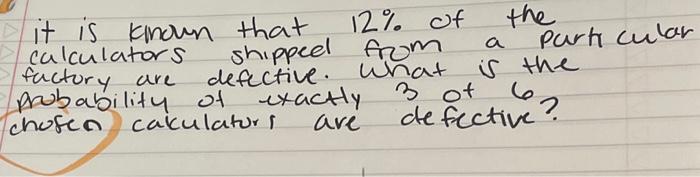 it is known that 12% of the
calculators shipped from a particular
factory are defective. What is the
probability of exactly 3 of 6
chosen calculators are defective?